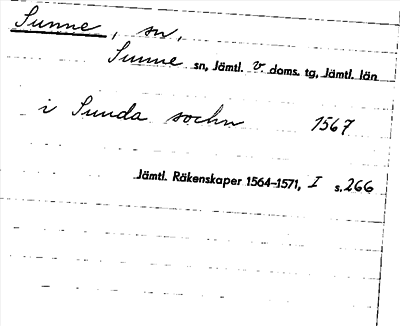 Sunne, sn.
Sunne sn, Jämtl. v. doms. tg, Jämtl. län
i Sunda sochn 1567
Jämtl. Räkenskaper 1564-1571, I s. 266